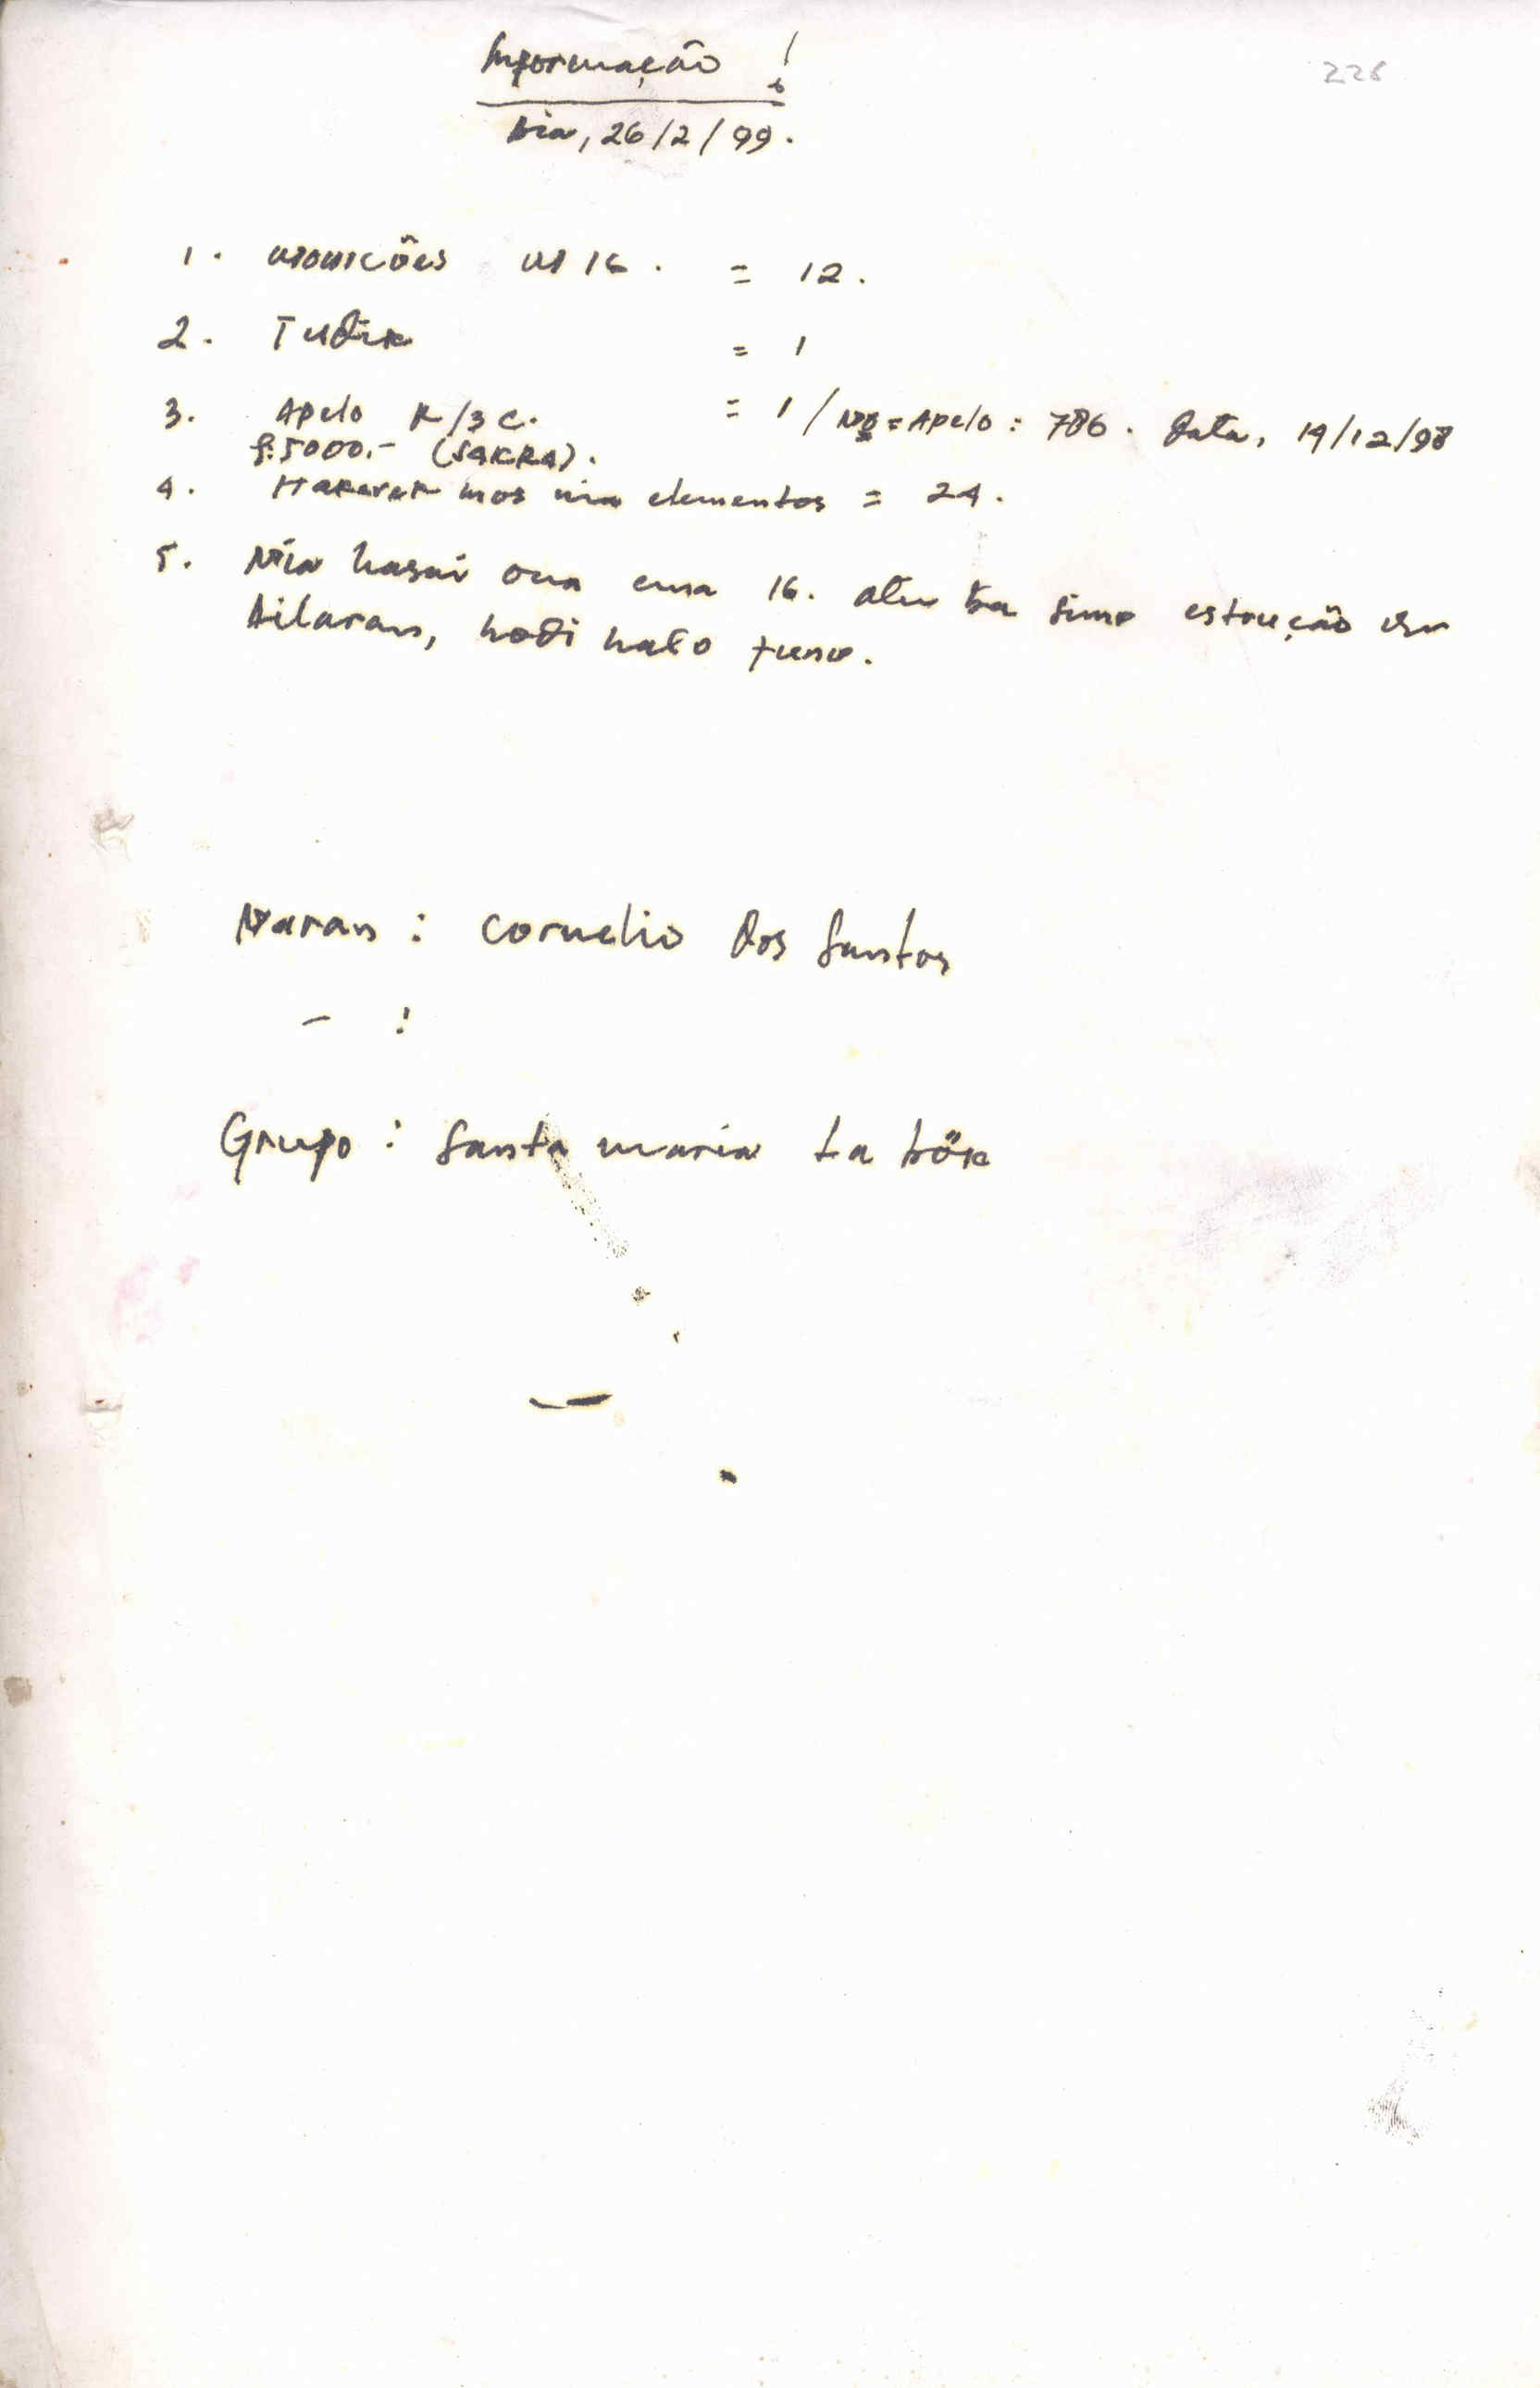 Informação !
228
Dia, 26/2/99.
1. Monicões M16. = 12.
2. Tudik = 1
3. Apelo K/3C. = 1 / Nº = Apelo : 786. Data, 14/12/98
5000.- (SAKRA).
4. Hakerek mos nia elementos = 24.
5. Nia hasai ona ema 16. atu ba simo estrução iha
Ailaran, hodi halo funu.
Naran : Cornelio dos Santos
- :
Grupo : Santa maria La bök